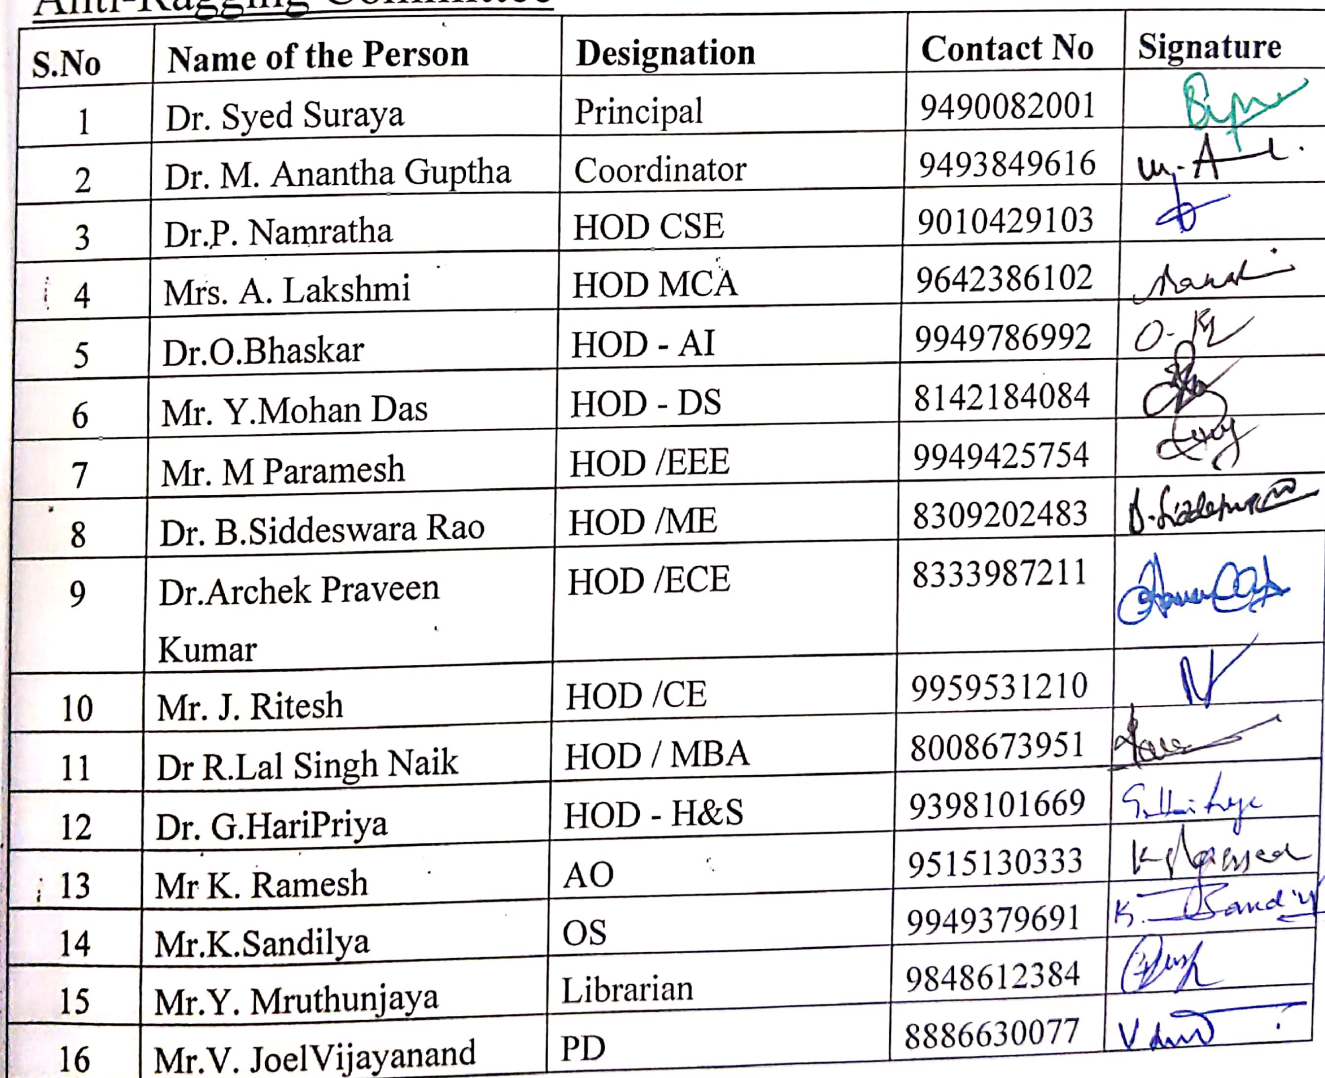 Anti-Ragging Committee
S.No Name of the Person Designation Contact No Signature
1 Dr. Syed Suraya Principal 9490082001
2 Dr. M. Anantha Guptha Coordinator 9493849616
3 Dr.P. Namratha HOD CSE 9010429103
4 Mrs. A. Lakshmi HOD MCA 9642386102
5 Dr.O.Bhaskar HOD - AI 9949786992
6 Mr. Y.Mohan Das HOD - DS 8142184084
7 Mr. M Paramesh HOD /EEE 9949425754
8 Dr. B.Siddeswara Rao HOD /ME 8309202483
9 Dr.Archek Praveen HOD /ECE 8333987211
Kumar
10 Mr. J. Ritesh HOD /CE 9959531210
11 Dr R.Lal Singh Naik HOD / MBA 8008673951
12 Dr. G.HariPriya HOD - H&S 9398101669
13 Mr K. Ramesh AO 9515130333
14 Mr.K.Sandilya OS 9949379691
15 Mr.Y. Mruthunjaya Librarian 9848612384
16 Mr.V. JoelVijayanand PD 8886630077